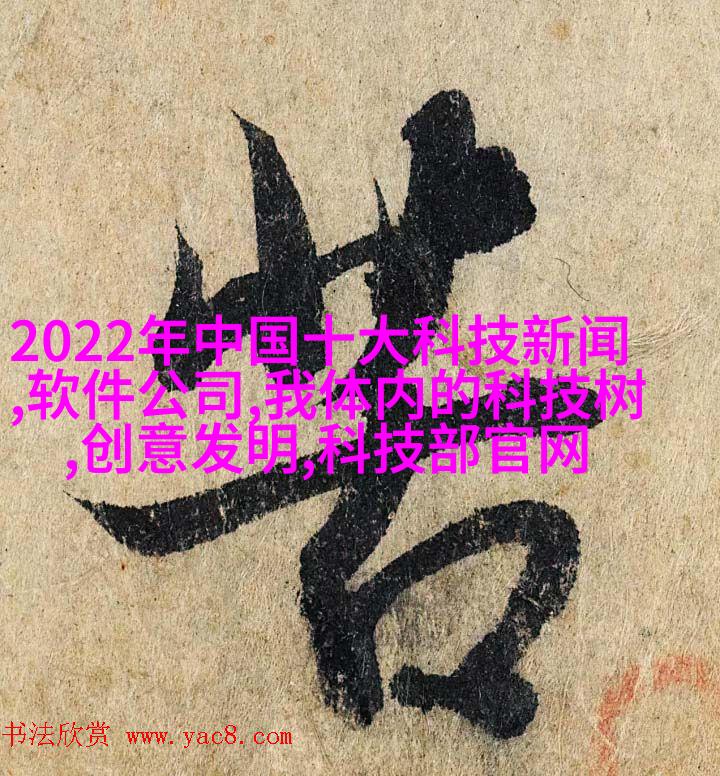 苦
2022年中国十大科技新闻
,软件公司,我体内的科技树
,创意发明,科技部官网
书法欣赏 www.yac8.com